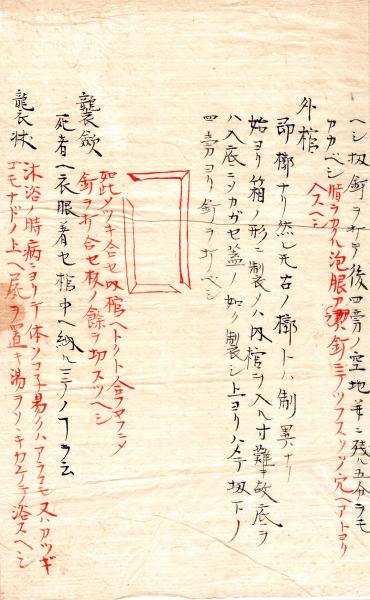 ヘシ扨釘ヲ打テ後四旁ノ空地並ニ残ル五分ヲモ
カカベシ
脂ヲカハ泡眼アリ釘ニテツフスソノ穴ヘアトヨリ
ヘスヘシ
外棺
即槨ナリ然レ𪜈古ノ槨トハ制異ナリ
始ヨリ箱ノ形ニ製シハ内棺ヲ入ル寸難キ故底ヲ
ハ入底ニソカガセ蓋ノ如ク製シ上ヨリハメテ扨下ノ
四旁ヨリ釘ヲ打ベシ
如此メツキ合セ内棺ヘトクト合フヤフニシ
釘ヲ打合セ板ノ餘ヲ切スツヘシ
襲歛
死者ヘ衣服着セ棺中ヘ納ルマテノヿヲ云
襲衣状
沐浴ノ時病ニヨリテ体ソコ子易クハアラコモ又ハカツギ
コモナドノ上ヘ屍ヲ置キ湯ヲソヽキカケテ浴スヘシ